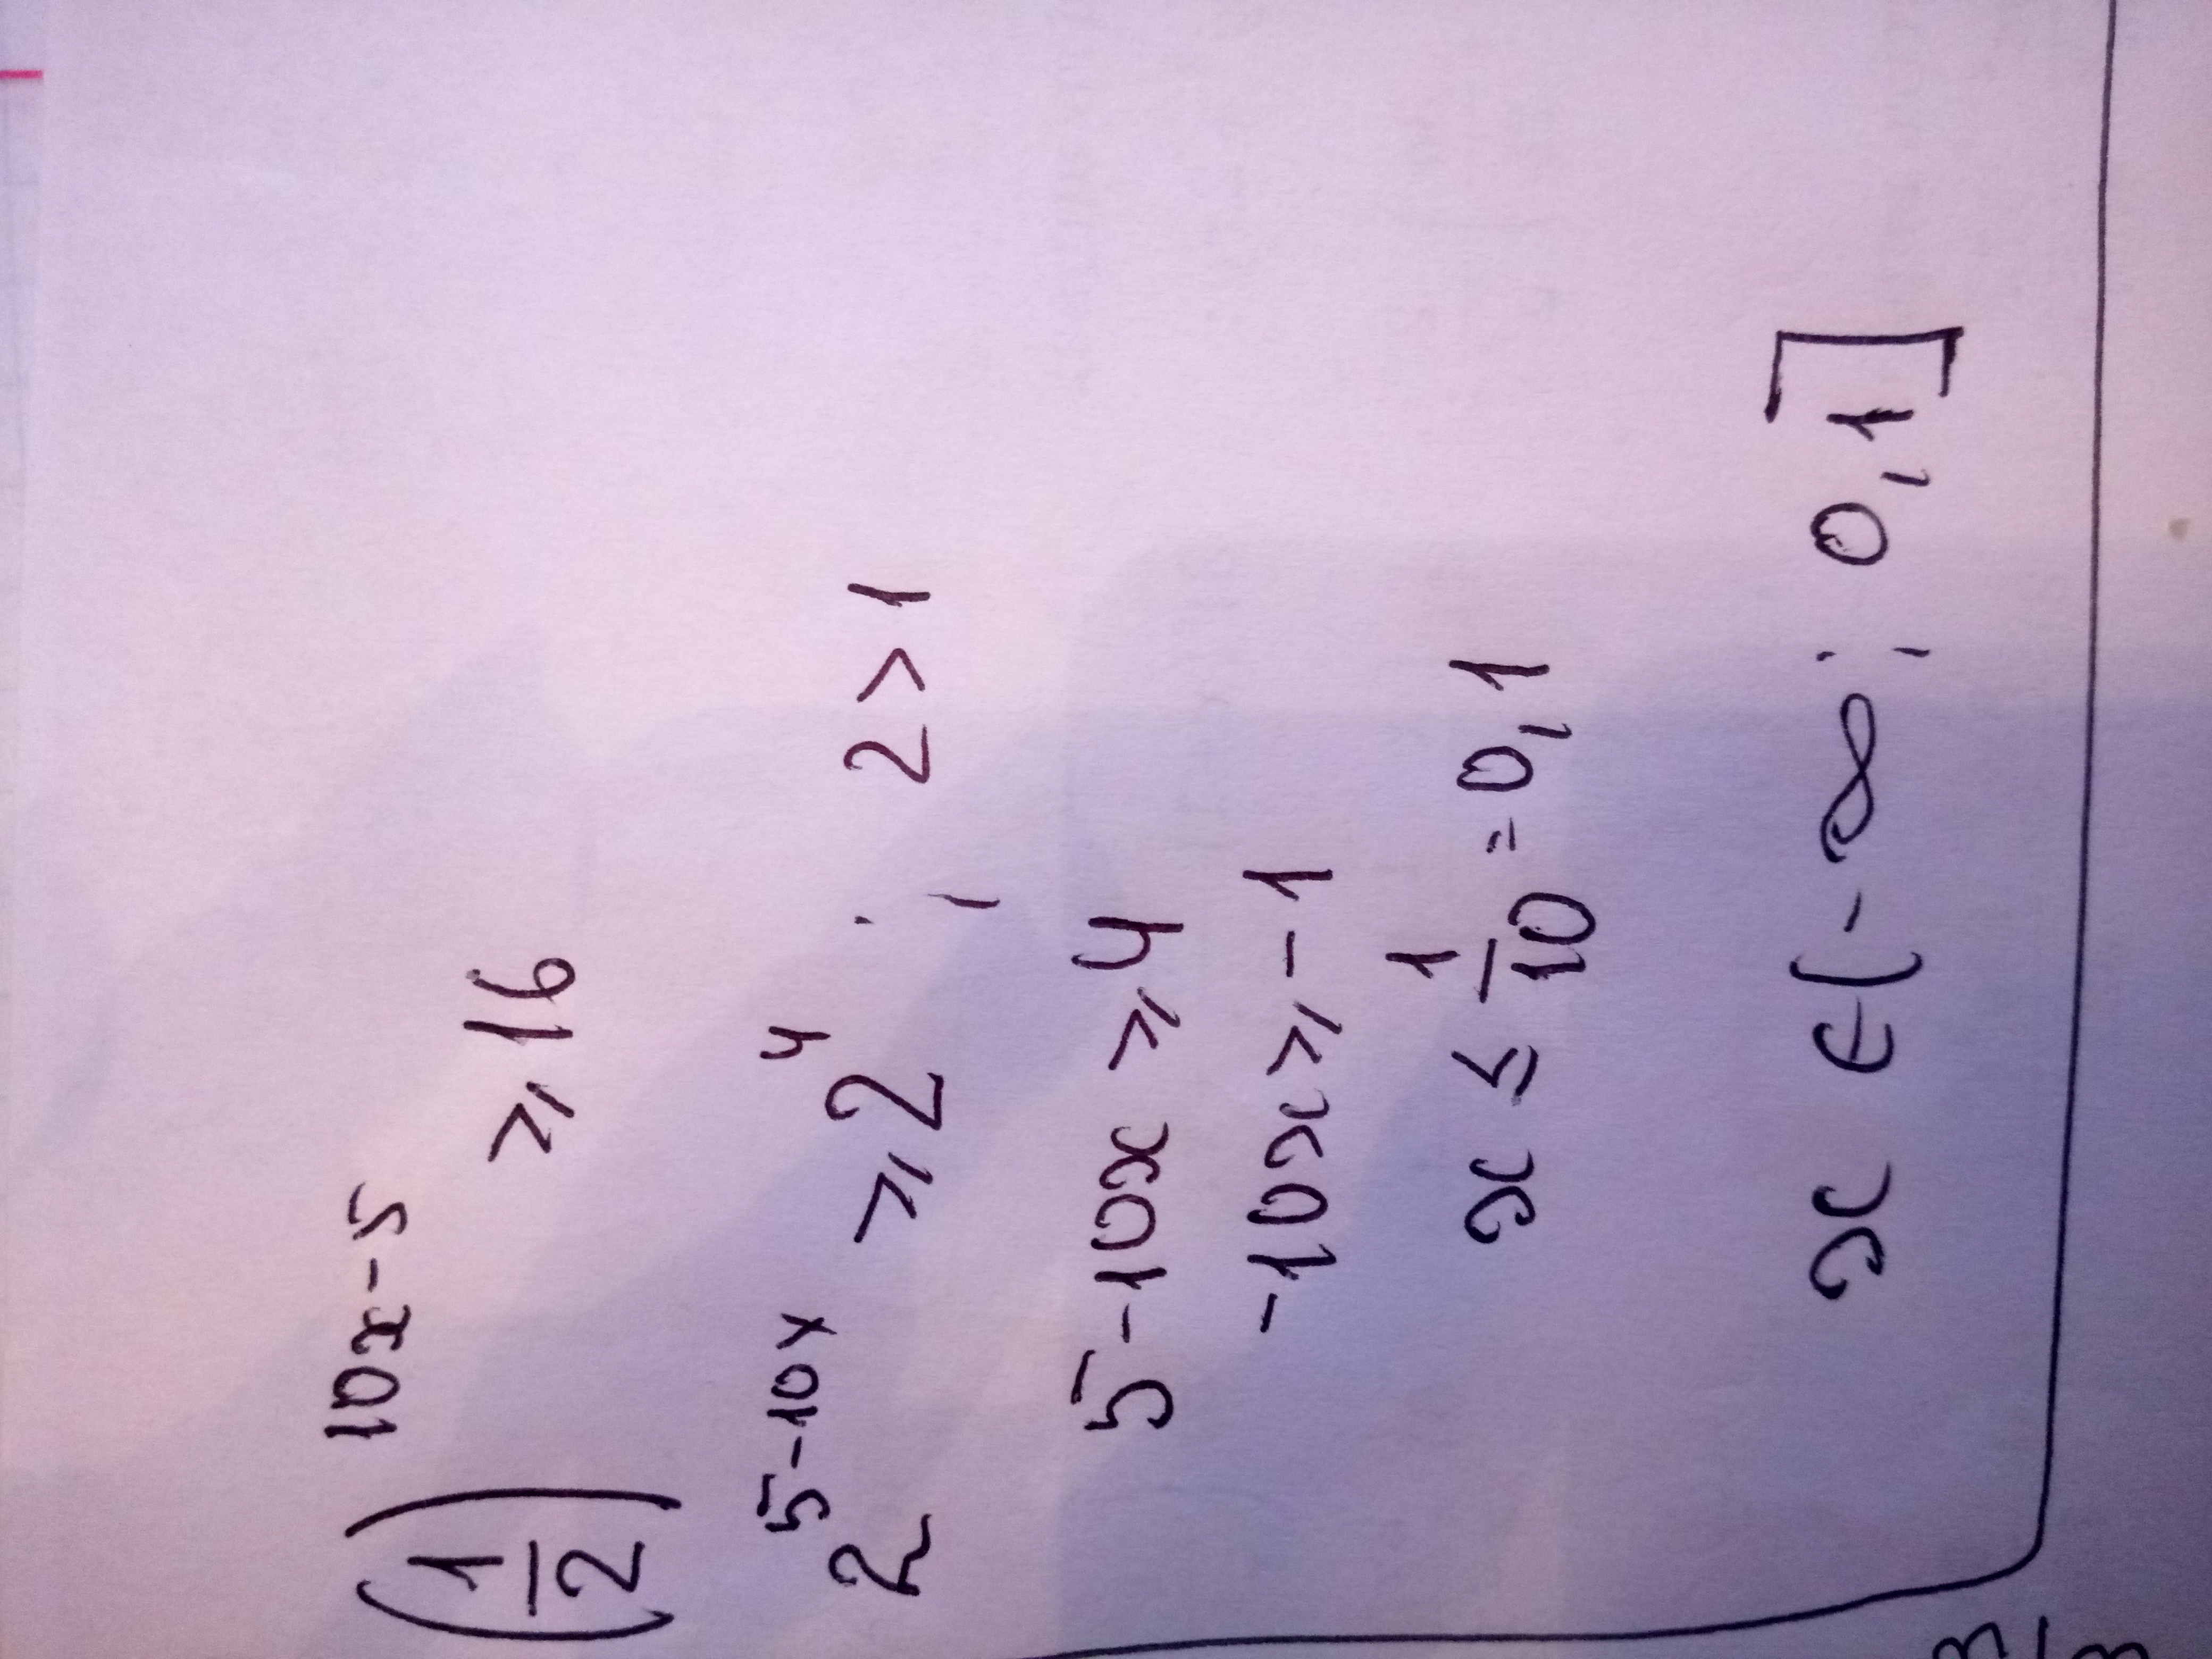 (1/2)^(10x-5) ⩾ 16
2^(5-10x) ⩾ 2^4 ; 2>1
5-10x ⩾ 4
-10x ⩾ -1
x ≤ 1/10 = 0,1
x ∈ (-∞; 0,1]